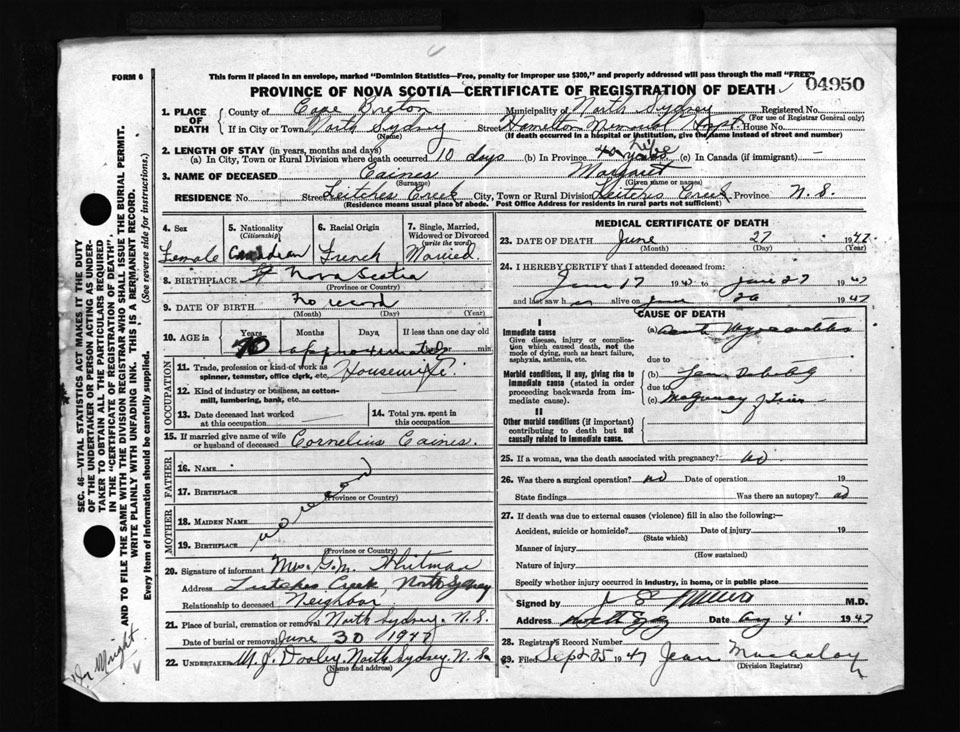 FORM 6
This form if placed in an envelope, marked "Dominion Statistics—Free, penalty for improper use $300," and properly addressed will pass through the mail "FREE"
PROVINCE OF NOVA SCOTIA—CERTIFICATE OF REGISTRATION OF DEATH
04950
1. PLACE OF DEATH
County of Cape Breton Municipality of North Sydney Registered No.
(For use of Registrar General only)
If in City or Town North Sydney Street Hamilton Memorial Hospt. House No.
(Name) (If death occurred in a hospital or institution, give the name instead of street and number)
2. LENGTH OF STAY (in years, months and days)
(a) In City, Town or Rural Division where death occurred 10 days (b) In Province life (c) In Canada (if immigrant) —
3. NAME OF DECEASED Caines Margaret
(Surname) (Given name or names)
RESIDENCE No. Street Leitches Creek City, Town or Rural Division Leitches Creek Province N.S.
(Residence means usual place of abode. Post Office Address for residents in rural parts not sufficient)
4. Sex
Female
5. Nationality
(Citizenship)
Canadian
6. Racial Origin
French
7. Single, Married, Widowed or Divorced
(write the word)
Married.
8. BIRTHPLACE Nova Scotia
(Province or Country)
9. DATE OF BIRTH no record
(Month) (Day) (Year)
10. AGE in Years Months Days If less than one day old
70 approximately hr. min.
OCCUPATION
11. Trade, profession or kind of work as spinner, teamster, office clerk, etc. Housewife.
12. Kind of industry or business, as cotton-mill, lumbering, bank, etc.
13. Date deceased last worked at this occupation
14. Total yrs. spent in this occupation
15. If married give name of wife or husband of deceased Cornelius Caines.
FATHER
16. NAME
17. BIRTHPLACE
(Province or Country)
MOTHER
18. MAIDEN NAME
19. BIRTHPLACE
(Province or Country)
no record
20. Signature of informant Mrs. G.M. Whitman
Address Leitches Creek, North Sydney
Relationship to deceased Neighbor
21. Place of burial, cremation or removal North Sydney. N.S.
Date of burial or removal June 30 1947
22. UNDERTAKER M.J. Dooley. North Sydney. N.S.
(Name and address)
MEDICAL CERTIFICATE OF DEATH
23. DATE OF DEATH June 27 1947
(Month) (Day) (Year)
24. I HEREBY CERTIFY that I attended deceased from:
June 17 1947 to June 27 1947
and last saw h er alive on June 1947
CAUSE OF DEATH
I
Immediate cause
Give disease, injury or complication which caused death, not the mode of dying, such as heart failure, asphyxia, asthenia, etc.
(a) Acute Myocarditis
due to
Morbid conditions, if any, giving rise to immediate cause (stated in order proceeding backwards from immediate cause)
(b)
due to
(c)
II
Other morbid conditions (if important) contributing to death but not causally related to immediate cause.
25. If a woman, was the death associated with pregnancy? no
26. Was there a surgical operation? no Date of operation 19
State findings Was there an autopsy? no
27. If death was due to external causes (violence) fill in also the following:—
Accident, suicide or homicide? Date of injury 19
(State which)
Manner of injury
(How sustained)
Nature of injury
Specify whether injury occurred in industry, in home, or in public place
Signed by M.D.
Address North Sydney Date Aug 4 1947
28. Registrar's Record Number
29. Filed Sept 25 1947 Jean
(Division Registrar)
SEC. 46—VITAL STATISTICS ACT MAKES IT THE DUTY
OF THE UNDERTAKER OR PERSON ACTING AS UNDER-
TAKER TO OBTAIN ALL THE PARTICULARS REQUIRED
IN THE "CERTIFICATE OF REGISTRATION OF DEATH",
AND TO FILE THE SAME WITH THE DIVISION REGISTRAR WHO SHALL ISSUE THE BURIAL PERMIT.
WRITE PLAINLY WITH UNFADING INK. THIS IS A PERMANENT RECORD.
Every item of information should be carefully supplied. (See reverse side for instructions.)
Dr Wright.